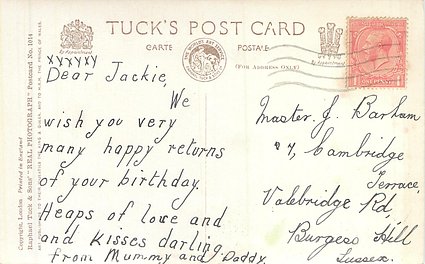 TUCK'S POST CARD
CARTE POSTALE
(FOR ADDRESS ONLY)
xyyyxy
Dear Jackie,
We
wish you very
many happy returns
of your birthday.
Heaps of love and
and kisses darling
from Mummy and Daddy.
Master J. Barham
7, Cambridge
Terrace,
Valebridge Rd,
Burgess Hill
Sussex.
Copyright, London. Printed in England
Raphael Tuck & Sons' "REAL PHOTOGRAPH" Postcard No. 1014